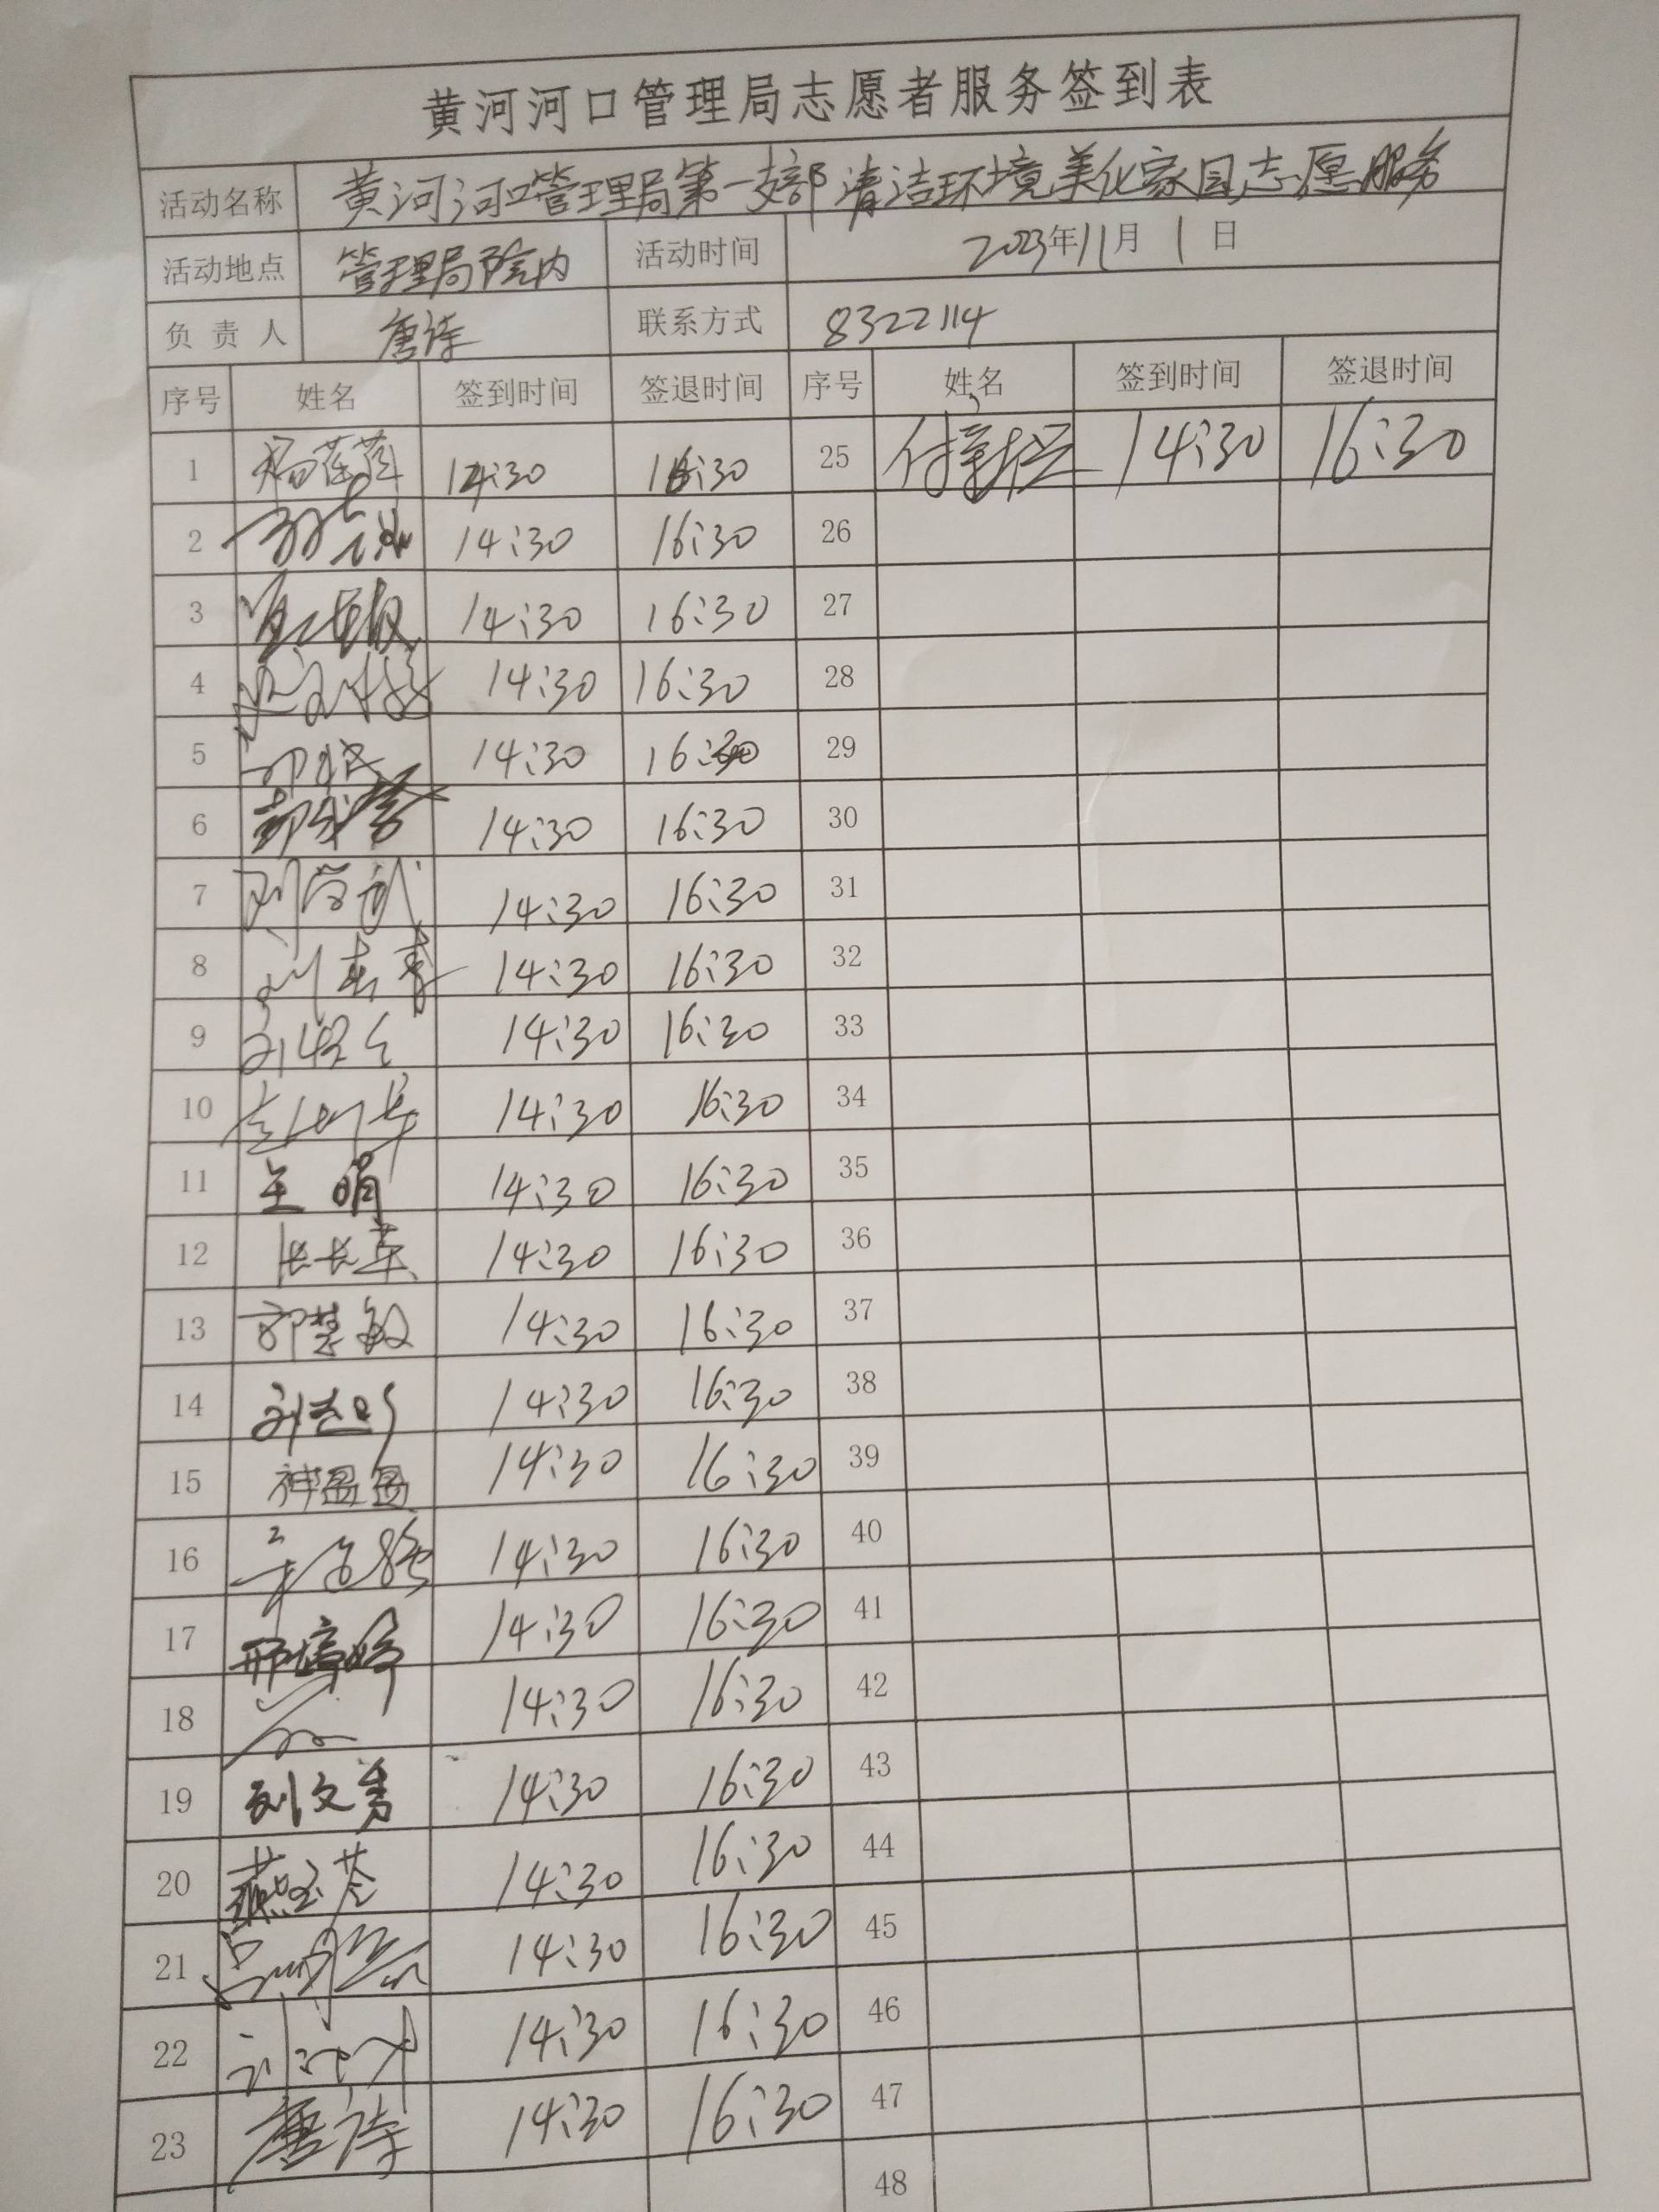 黄河河口管理局志愿者服务签到表
活动名称 黄河河口管理局第一支部清洁环境美化家园志愿服务
活动地点 管理局院内 活动时间 2023年11月1日
负责人 唐诗 联系方式 8322114
序号 姓名 签到时间 签退时间 序号 姓名 签到时间 签退时间
1 14:30 16:30 25 14:30 16:30
2 14:30 16:30 26
3 14:30 16:30 27
4 14:30 16:30 28
5 14:30 16:30 29
6 14:30 16:30 30
7 14:30 16:30 31
8 14:30 16:30 32
9 14:30 16:30 33
10 14:30 16:30 34
11 王娟 14:30 16:30 35
12 14:30 16:30 36
13 郭慧敏 14:30 16:30 37
14 14:30 16:30 38
15 神盈盈 14:30 16:30 39
16 14:30 16:30 40
17 邢婷婷 14:30 16:30 41
18 14:30 16:30 42
19 刘文秀 14:30 16:30 43
20 燕玉苓 14:30 16:30 44
21 14:30 16:30 45
22 14:30 16:30 46
23 唐诗 14:30 16:30 47
48